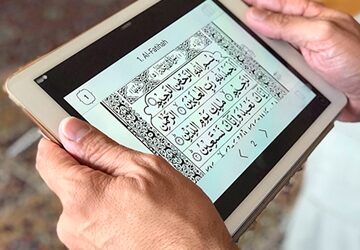 1. Al-Fatihah
بِسْمِ اللهِ الرَّحْمٰنِ الرَّحِيْمِ
اَلْحَمْدُ لِلّٰهِ رَبِّ الْعٰلَمِيْنَ الرَّحْمٰنِ
الرَّحِيْمِ مٰلِكِ يَوْمِ الدِّيْنِ اِيَّاكَ
نَعْبُدُ وَاِيَّاكَ نَسْتَعِيْنُ
< 2 >